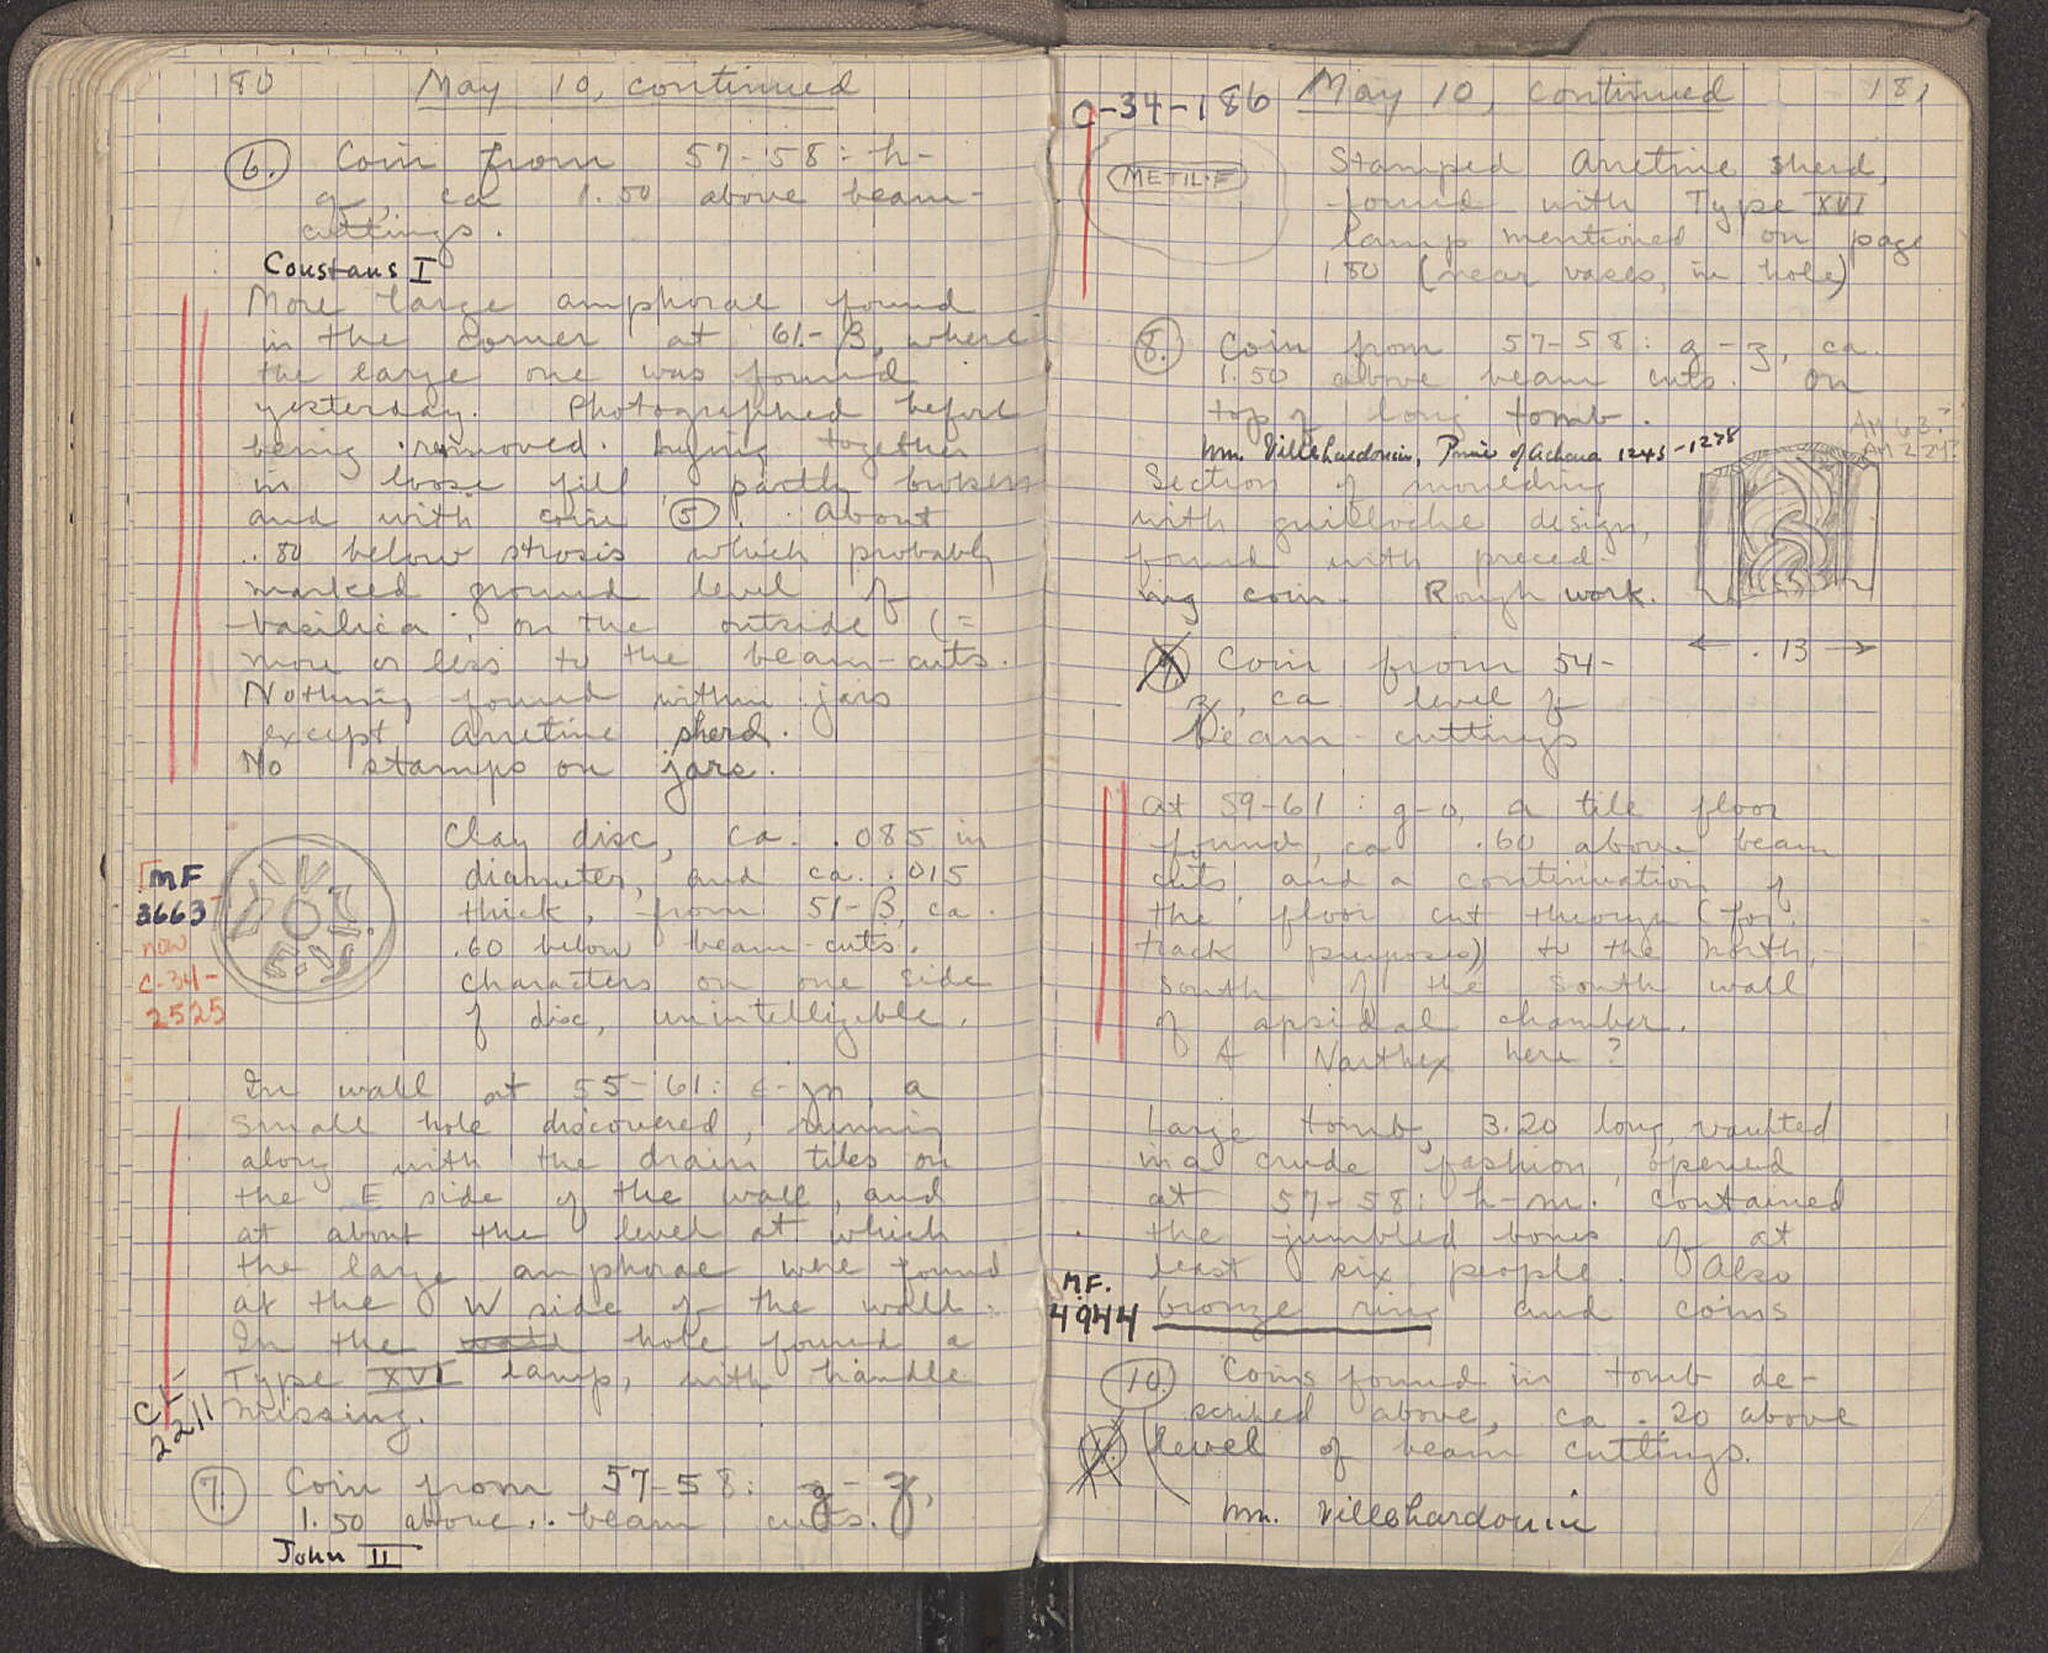 180 May 10, continued
6. Coin from 57-58: h-
g, ca 1.50 above beam-
cuttings.
Constans I
More large amphorae found
in the corner at 61-B, where
the large one was found
yesterday. Photographed before
being removed. Lying together
in loose fill, partly broken
and with coin 5. About
.80 below strosis which probably
marked ground level of
basilica, on the outside (=
more or less to the beam-cuts.
Nothing found within jars
except Arretine sherd.
No stamps on jars.
Clay disc, ca. .085 in
diameter, and ca. .015
thick, from 51-B, ca.
.60 below beam-cuts.
Characters on one side
of disc, unintelligible.
MF
3663
now
C-34-
2525
In wall at 55-61: c-m, a
small hole discovered, running
along with the drain tiles on
the E side of the wall, and
at about the level at which
the large amphorae were found
at the W side of the wall.
In the wall hole found a
Type XVI lamp, with handle
missing.
CL-
2211
7. Coin from 57-58: g-z,
1.50 above beam cuts.
John II
C-34-186 May 10, continued 181
METIL·F
Stamped Arretine sherd,
found with Type XVI
lamp mentioned on page
180 (near vases, in hole)
8. Coin from 57-58: g-z, ca.
1.50 above beam cuts. On
top of long tomb.
Wm. Villehardouin, Prince of Achaea 1245-1278
Section of moulding
with guilloche design,
found with preced-
ing coin. Rough work.
.13
9. Coin from 54-
z, ca level of
beam-cuttings
At 59-61: g-o, a tile floor
found, ca .60 above beam
cuts, and a continuation of
the floor cut through (for
track purposes) to the north,
south of the south wall
of apsidal chamber.
A Narthex here?
Large tomb, 3.20 long, vaulted
in a crude fashion, opened
at 57-58: h-m. Contained
the jumbled bones of at
least six people. Also
M.F.
4944 bronze ring and coins
10. Coins found in tomb de-
scribed above, ca .20 above
level of beam cuttings.
Wm. Villehardouin